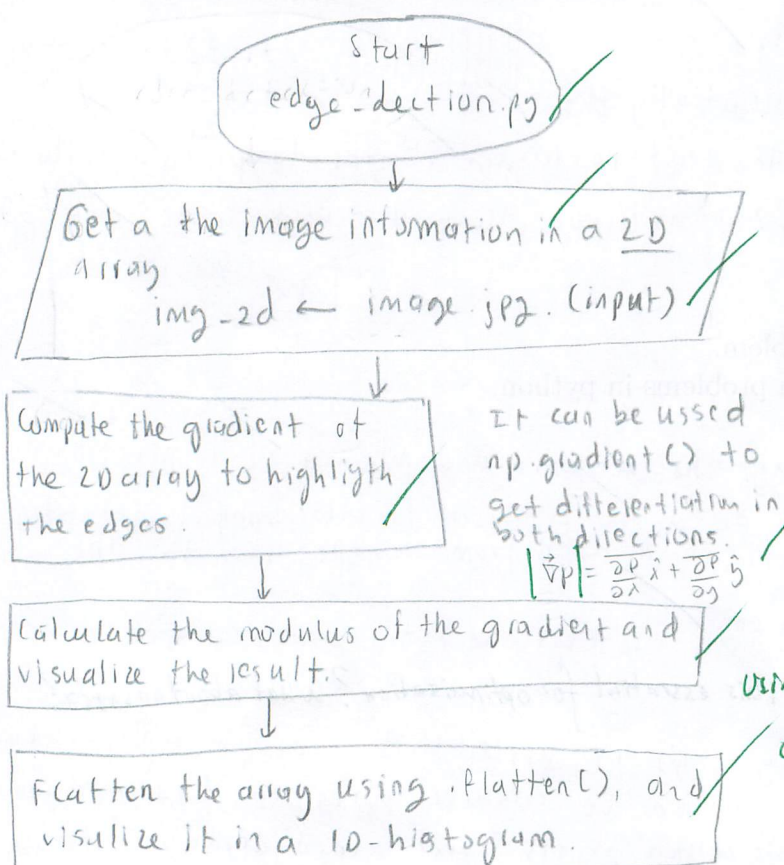 Start
edge_dection.py
Get a the image information in a 2D
array
img_2d ← image.jpg. (input)
Compute the gradient of
the 2D array to highligth
the edges.
It can be ussed
np.gradient() to
get differentiation in
both directions.
|∇⃗p| = ∂p/∂x î + ∂p/∂y ŷ
Calculate the modulus of the gradient and
visualize the result.
Flatten the array using .flatten(), and
visulize it in a 1D-histogram
problems in python
is essential for optimisation